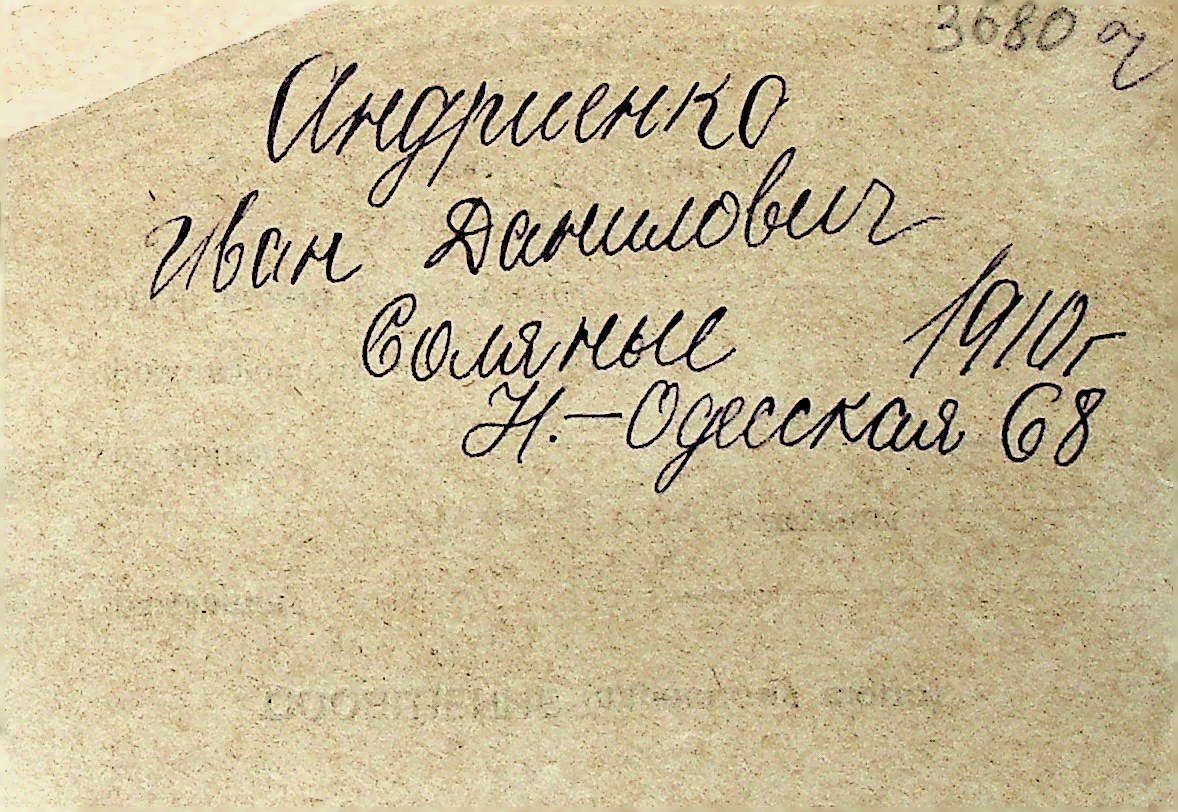 3680 ч
Андриенко
Иван Данилович
Соляные 1910г
Н.-Одесская 68